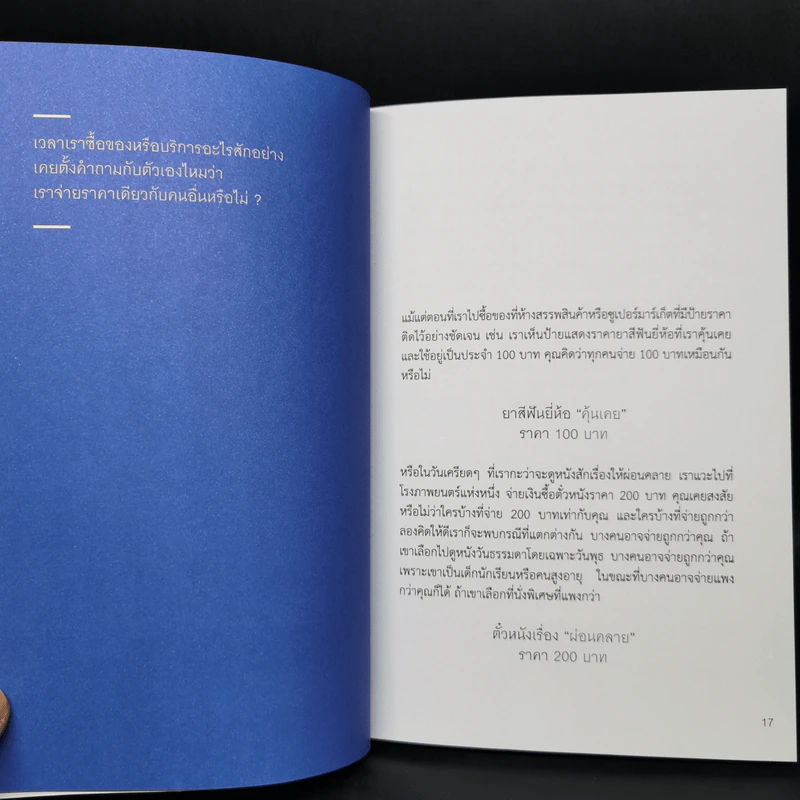 เวลาเราซื้อของหรือบริการอะไรสักอย่าง
เคยตั้งคำถามกับตัวเองไหมว่า
เราจ่ายราคาเดียวกับคนอื่นหรือไม่ ?
แม้แต่ตอนที่เราไปซื้อของที่ห้างสรรพสินค้าหรือซูเปอร์มาร์เก็ตที่มีป้ายราคา
ติดไว้อย่างชัดเจน เช่น เราเห็นป้ายแสดงราคายาสีฟันยี่ห้อที่เราคุ้นเคย
และใช้อยู่เป็นประจำ 100 บาท คุณคิดว่าทุกคนจ่าย 100 บาทเหมือนกัน
หรือไม่
ยาสีฟันยี่ห้อ “คุ้นเคย”
ราคา 100 บาท
หรือในวันเครียดๆ ที่เรากะว่าจะดูหนังสักเรื่องให้ผ่อนคลาย เราแวะไปที่
โรงภาพยนตร์แห่งหนึ่ง จ่ายเงินซื้อตั๋วหนังราคา 200 บาท คุณเคยสงสัย
หรือไม่ว่าใครบ้างที่จ่าย 200 บาทเท่ากับคุณ และใครบ้างที่จ่ายถูกกว่า
ลองคิดให้ดีเราก็จะพบกรณีที่แตกต่างกัน บางคนอาจจ่ายถูกกว่าคุณ ถ้า
เขาเลือกไปดูหนังวันธรรมดาโดยเฉพาะวันพุธ บางคนอาจจ่ายถูกกว่าคุณ
เพราะเขาเป็นเด็กนักเรียนหรือคนสูงอายุ ในขณะที่บางคนอาจจ่ายแพง
กว่าคุณก็ได้ ถ้าเขาเลือกที่นั่งพิเศษที่แพงกว่า
ตั๋วหนังเรื่อง “ผ่อนคลาย”
ราคา 200 บาท
17